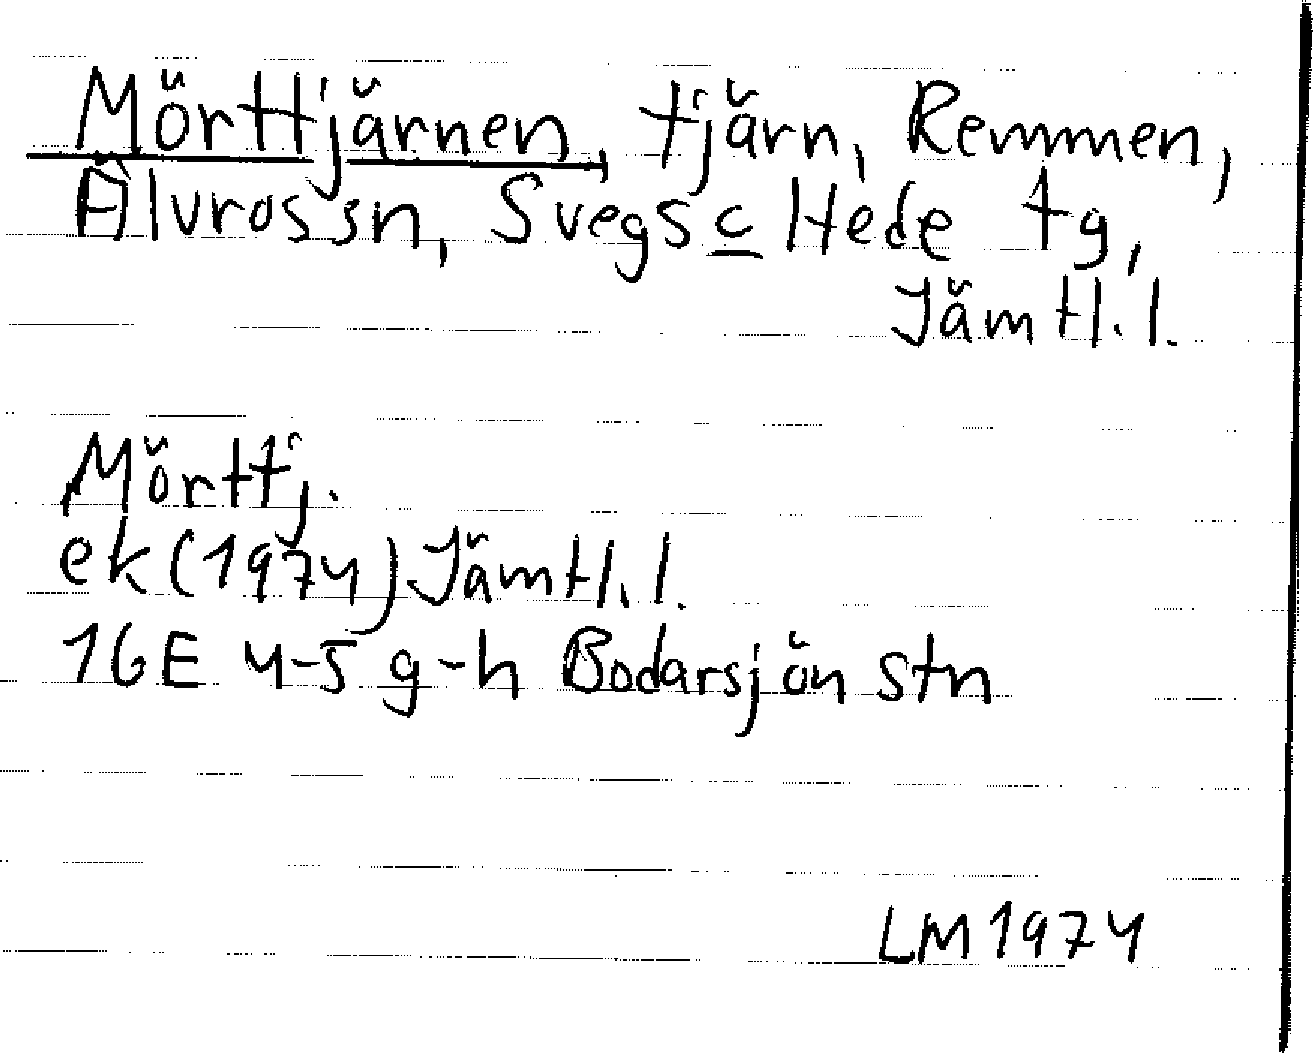 Mörttjärnen, tjärn, Remmen,
Älvros sn, Svegs o Hede tg,
Jämtl. l.
Mörttj.
ek (1974) Jämtl. l.
16E 4-5 g-h Bodarsjön stn
LM 1974